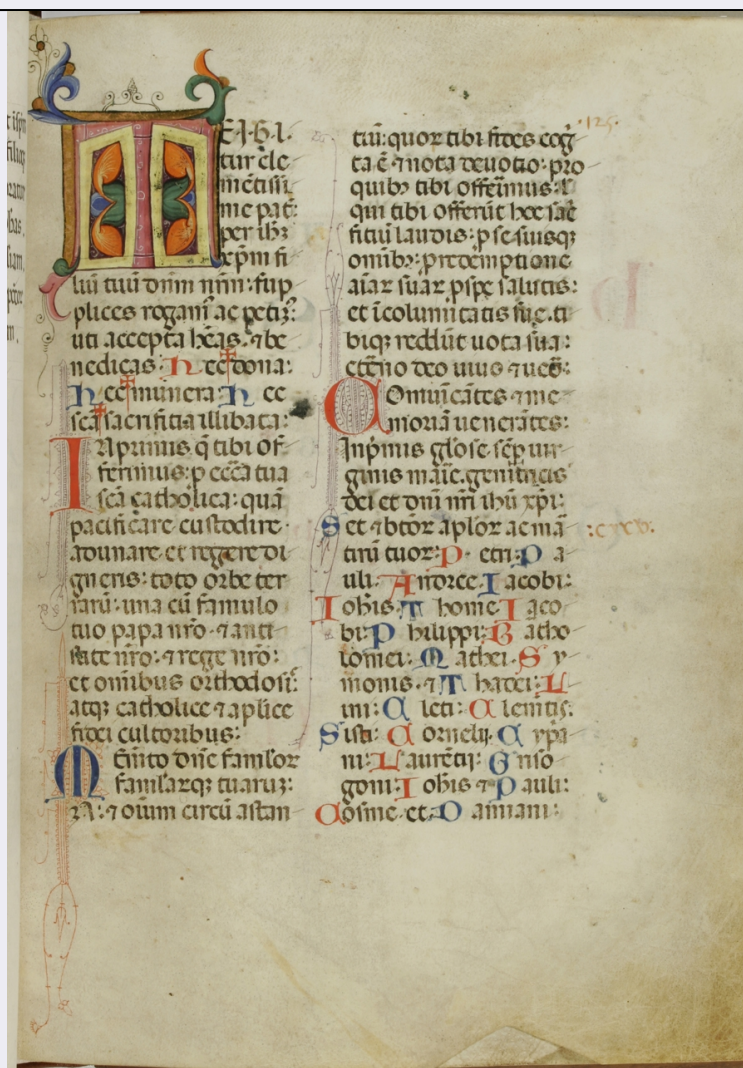 TE·I·G·I·
tur cle
mētissi
me pat̄:
per ihm
xpm fi
liū tuū dnm nrm: sup
plices rogam᷒ ac petim᷒:
uti accepta heas. ⁊ be
nedicas. Nec ✝ dona:
Nec ✝ munera Nec
scā ✝ sacrificia illibata:
IN primis q̄ tibi of
ferimus: p eccā tua
scā catholica: quā
pacificare custodire·
adunare et regere di
gneris: toto orbe ter
rarū: una cū famulo
tuo papa nr̄o· ⁊ anti
stite nr̄o: ⁊ rege nr̄o:
et omībus orthodosī:
atq̄ catholice ⁊ aplice
fidei cultoribus:
Memto dn̄e famlor
famlarq̄ tuaruz:
N: ⁊ oīum circū astan
tiū: quor tibi fides cog
ta ē ⁊ nota deuotio: pro
quibȝ tibi offerimus: ł
qui tibi offerūt hoc sac
ficiū laudis: p se suisqȝ
omībȝ: p redemptione
aīar suar p spe salutis:
et īcolumitatis sue. ti
biqȝ reddūt uota sua:
et̄no deo uiuo ⁊ uēo:
Comuīcātes ⁊ me
moriā uenerātes:
Inp̄mis gl̄ose sēp uir
ginis maīe. genitricis
dei et dn̄i nr̄i ihū xp̄i:
Set ⁊ btōr aplor ac mā
tirū tuor: P· etri: P a
uli· Andree Iacobi:
Iohis· T home I aco
bi: P hilippi: B atho
lomei: M athei· S y
monis· ⁊ T hadei: L
ini: C leti: C lemtis:
Sisti: C ornelij. C ypa
ni: L aurētij: G̅ riso
goni: I ohis ⁊ P auli:
Cosme· et· D amiani:
·125·
:cxxv.